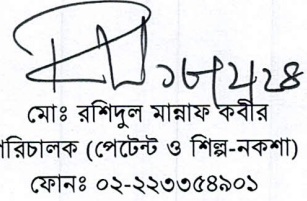 ১৮/২/২৪
মোঃ রশিদুল মান্নাফ কবীর
পরিচালক (পেটেন্ট ও শিল্প-নকশা)
ফোনঃ ০২-২২৩৩৫৪৯০১